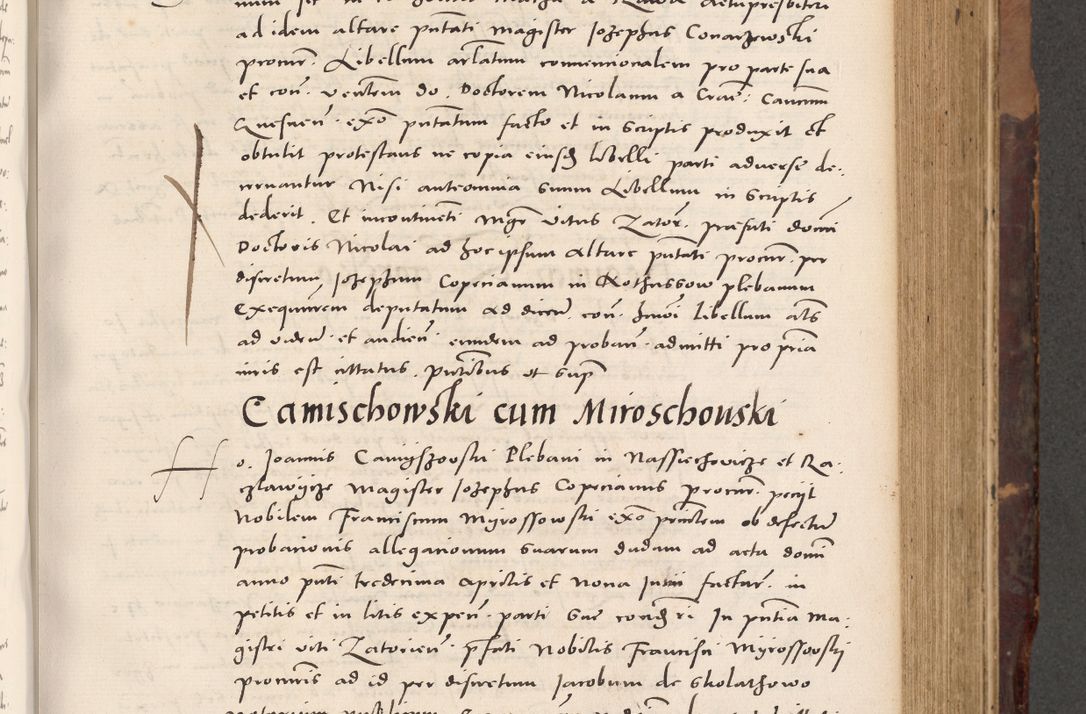 ad idem altare putati Magister Jozephus Conarzewski
procur. Libellum arlatum convencionalem pro parte sua
et con. ventem do. Doctorem Nicolaum a Crac. Canonicum
exo putatum facto et in scriptis produxit et
obtulit protestans ne copia eiusdem libelli parti adverse de-
cernantur Nisi anteomnia suum Libellum in scriptis
dederit. Et incontinenti Mgr Vitus Zator. prefati domi
Doctoris Nicolai ad hoc ipsum Altare putate procur. per
discretum Jozephum Copecianum in Rothussow plebanum
Exequutorem deputatum ad dicen. con. Libellum als
ad viden. et audien. eundem ad proban. admitti pro pria
iuris est cittatus. putibus ut sup
Camischowski cum Miroschouski
o. Joannis Camyszovski Plebani in Nassiechovicze et Ra-
czlawycze Magister Jozephus Copecianus procur. pecijt
Nobilem Franciscum Myrossowski exo putem ob defectu
probacionis allegacionum suarum dudum ad acta domi
anno puti tredecima Aprilis et Nona Junii factar. in
petitis et in litis expen. parti sue condri In putia Ma-
gistri viti Zatorien. pfati Nobilis Francisci Myrossovski
procuris ad id per discretum Jacobum de Skolathowo